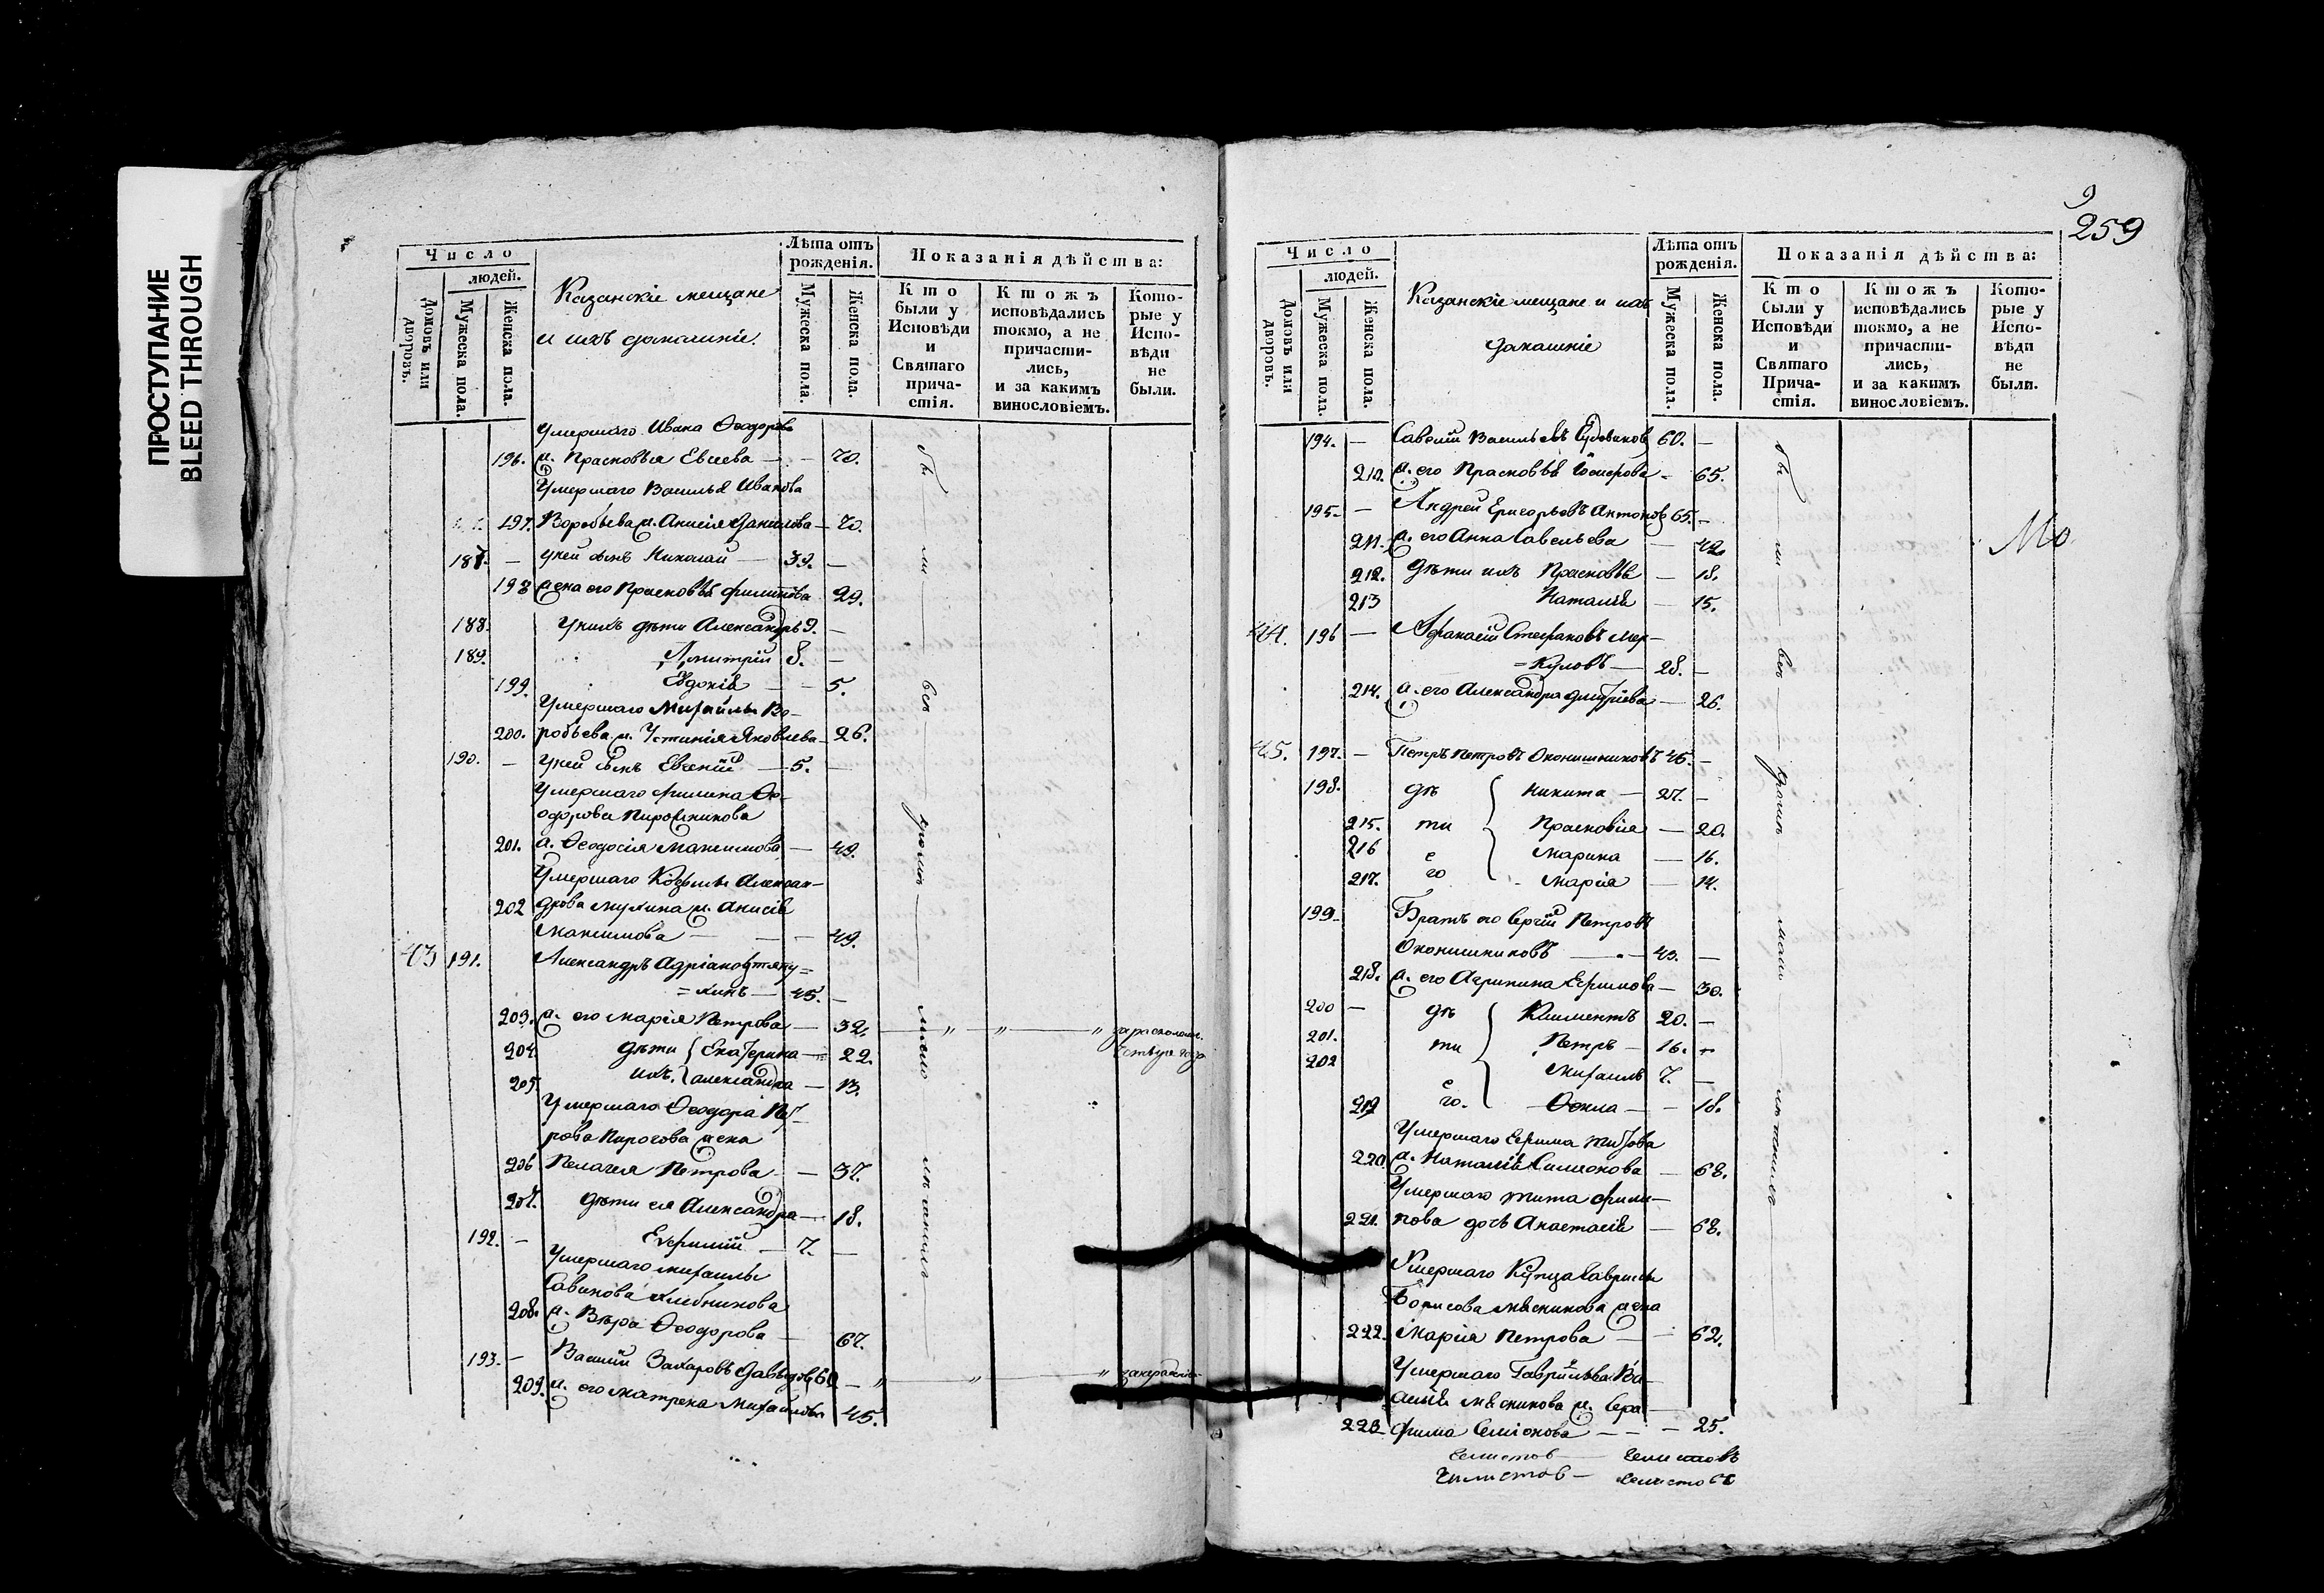 ПРОСТУПАНИЕ
BLEED THROUGH
Число
людей.
Домовъ или дворовъ.
Мужеска пола.
Женска пола.
Казанскіе мещане
и ихъ домашніе.
Лѣта отъ рожденія.
Мужеска пола.
Женска пола.
Показанія дѣйства:
Кто были у Исповѣди и Святаго прича-стія.
Ктожъ исповѣдались токмо, а не причасти-лись, и за какимъ винословіемъ.
Кото-рые у Испо-вѣди не были.
Умершаго Ивана Ѳеодорова
196. ж. Прасковья Евсеева — 70.
Умершаго Василья Иванова
197. Воробьева ж. Анисія Данилова — 70.
187. — у ней сынъ Николай — 39. —
198 жена его Прасковья Филипова 29.
188. У нихъ дѣти Александръ 9. —
189. Дмитрій 8. —
199. Евдокія — 5.
Умершаго Михаилы Во-
200. робьева ж. Устинія Яковлева — 26.
190. — у ней сынъ Евгеній — 5. —
Умершаго Филипа Ѳе-
одорова Пирожникова
201. ж. Ѳеодосія Максимова — 49.
Умершаго Козмы Алексан-
202 дрова Мухина ж. Анисія
Максимова — 49.
43 191. Александръ Адріановъ
=хинъ — 45. —
203. ж. его Марія Петрова — 32.
204. дѣти Екатерина — 22.
205 ихъ. Александра — 13.
Умершаго Ѳеодора Пет-
рова Пирогова жена
206 Пелагея Петрова — 37.
207. дѣти ея Александра — 18.
192. — Евфимій — 7. —
Умершаго Михаилы
Савинова Хлебникова
208. ж. Вѣра Ѳеодорова — 67.
193. — Василій Захаровъ Давыдовъ 60 —
209. ж. его Матрена Михайлова 45.
259
Число
людей.
Домовъ или дворовъ.
Мужеска пола.
Женска пола.
Казанскіе мещане и ихъ
домашніе
Лѣта отъ рожденія.
Мужеска пола.
Женска пола.
Показанія дѣйства:
Кто были у Исповѣди и Святаго Прича-стія.
Ктожъ исповѣдались токмо, а не причасти-лись, и за какимъ винословіемъ.
Кото-рые у Испо-вѣди не были.
194. — Савелій Васильевъ 60. —
210. ж. его Прасковья 65.
195. — Андрей Григорьевъ Антоновъ 65. —
211. ж. его Анна Савельева — 42.
212. дѣти ихъ Прасковья — 18.
213 Наталія — 15.
44. 196 — Афанасій Стефановъ Мер-
=куловъ — 28. —
214. ж. его Александра Дмитріева — 26.
45. 197. — Петръ Петровъ Оконишниковъ 45. —
198. дѣ Никита — 27. —
215. ти Прасковія — 20.
216 е Марина — 16.
217. го Марія — 14.
199. Братъ его Сергій Петровъ
Оконишниковъ — 43. —
218. ж. его Агрипина Ефимова — 30.
200 — дѣ Климентъ 20. —
201. ти Петръ — 16. —
202 е Михаилъ 7. —
219 го. Ѳекла — 18.
Умершаго Ефима Титова
220. ж. Наталія Симеонова — 68.
Умершаго Тита Фили-
221. пова дочь Анастасія — 68.
Умершаго Купца Гаврилы
Борисова Мясникова жена
222. Марія Петрова — 62.
Умершаго Гаврильева Ва-
силія Мясникова ж. Сера-
223. фима Семіонова — 25.